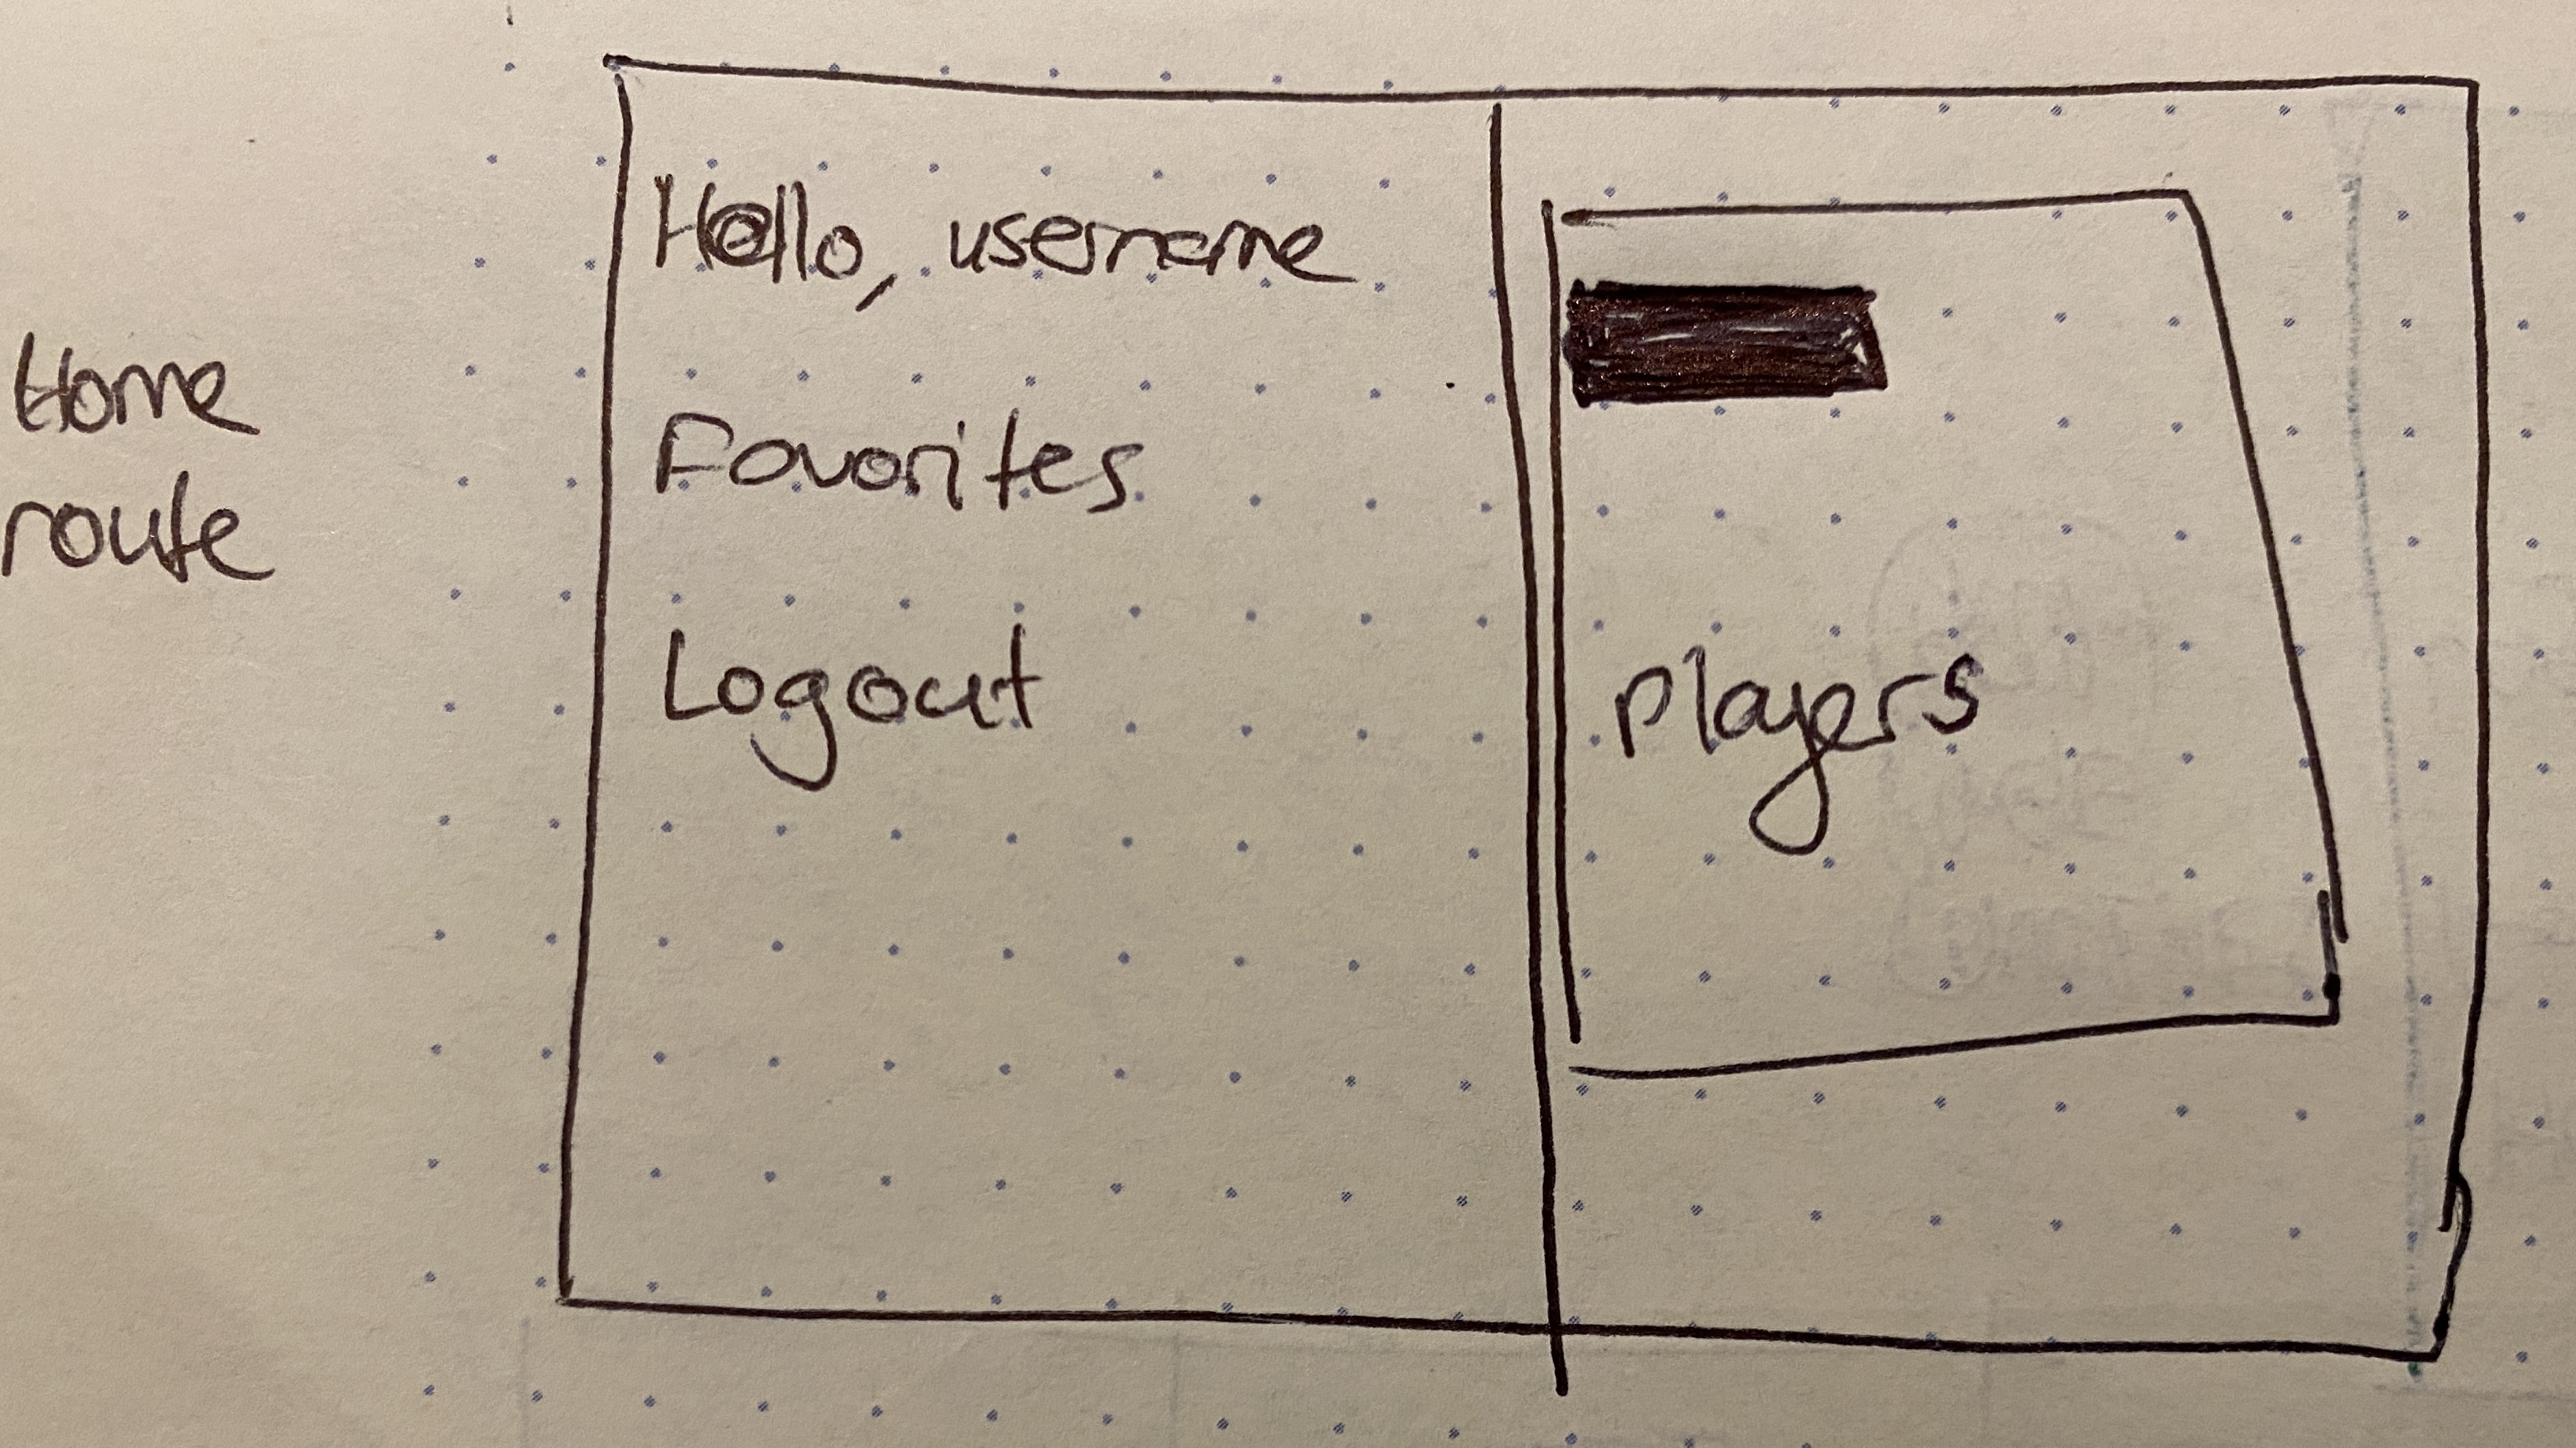 Home
route
Hello, username
Favorites
Logout
players